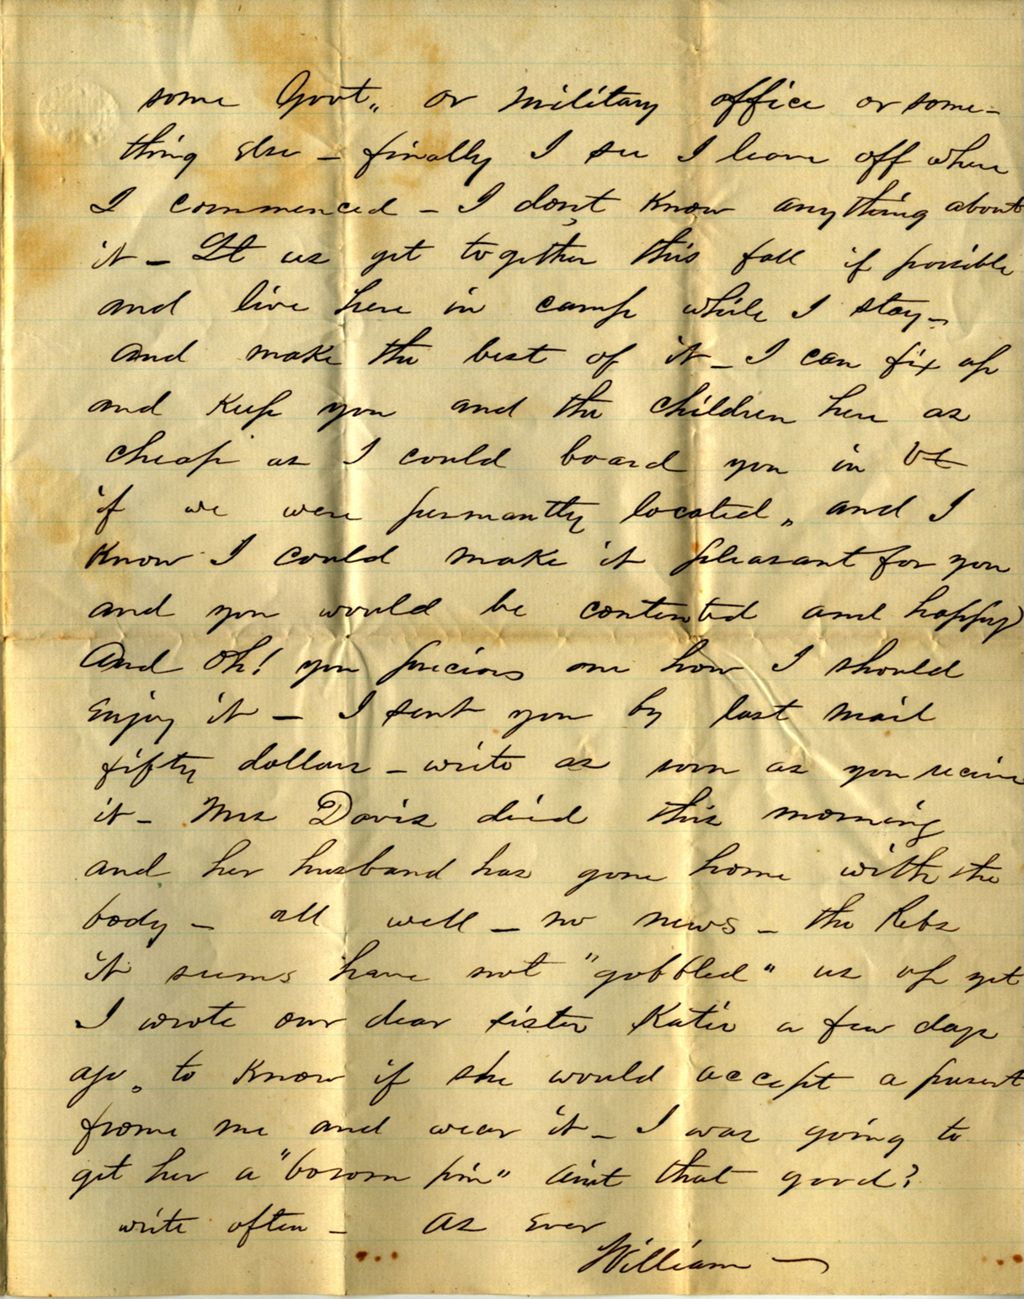 some Govt,, or military office or some-
thing else – finally I see I leave off where
I commenced – I don,t know anything about
it – Let us get together this fall if possible
and live here in camp while I stay –
And make the best of it – I can fix up
and keep you and the children here as
cheap as I could board you in Vt
if we were permantly located, and I
know I could make it pleasant for you
and you would be contented and happy
And Oh! you precious one how I should
enjoy it – I sent you by last mail
fifty dollars – write as soon as you recieve
it – Mrs Davis died this morning
and her husband has gone home with the
body – all well – no news – the Rebs
it seems have not "gobbled" us up yet
I wrote our dear sister Katie a few days
ago, to know if she would accept a present
frome me and wear it – I was going to
get her a "bosom pin" aint that good?
write often – As Ever
William –